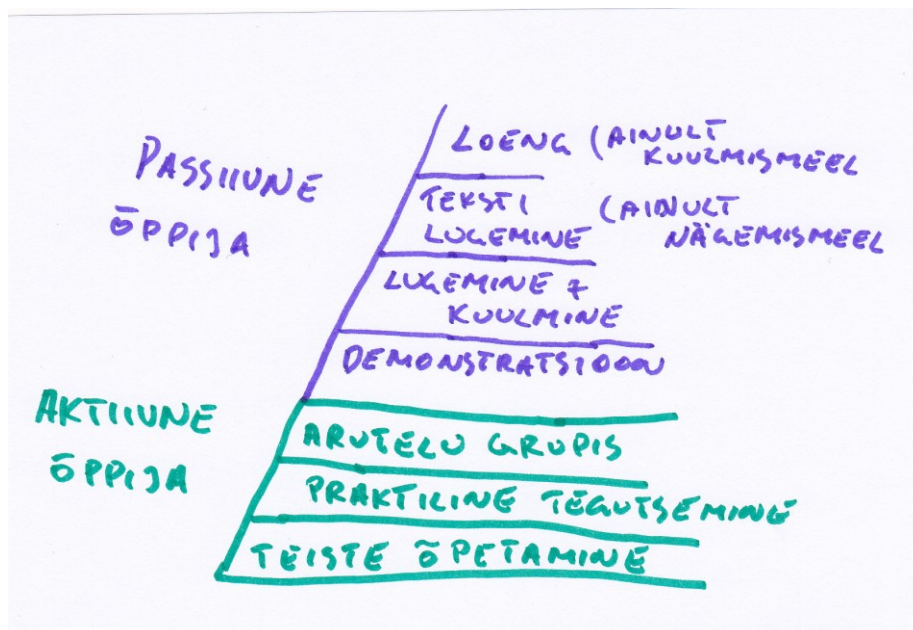 PASSIIVNE
ÕPPIJA
LOENG (AINULT
KUULMISMEEL
TEKSTI (AINULT
LUGEMINE NÄGEMISMEEL
LUGEMINE +
KUULMINE
DEMONSTRATSIOON
AKTIIVNE
ÕPPIJA
ARUTELU GRUPIS
PRAKTILINE TEGUTSEMINE
TEISTE ÕPETAMINE